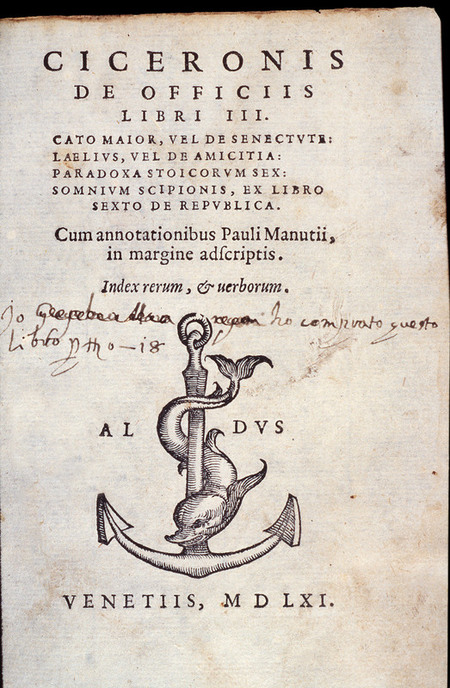 CICERONIS
DE OFFICIIS
LIBRI III.
CATO MAIOR, VEL DE SENECTVTE:
LAELIVS, VEL DE AMICITIA:
PARADOXA STOICORVM SEX:
SOMNIVM SCIPIONIS, EX LIBRO
SEXTO DE REPVBLICA.
Cum annotationibus Pauli Manutii,
in margine adscriptis.
Index rerum, & uerborum.
Jo ho comprato questo
Libro
AL DVS
VENETIIS, M D LXI.